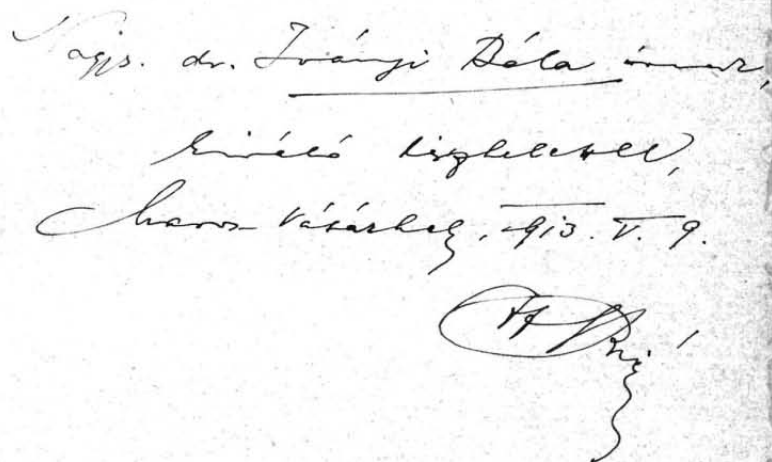 Nags. dr. Iványi Béla úrnak,
kiváló tisztelettel,
Maros-Vásárhely, 913. V. 9.